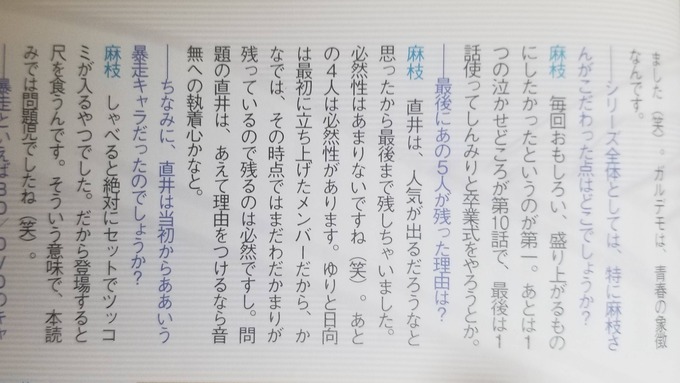 ました（笑）。ガルデモは、青春の象徴
なんです。
──シリーズ全体としては、特に麻枝さ
んがこだわった点はどこでしょうか？
麻枝　毎回おもしろい、盛り上がるもの
にしたかったというのが第一。あとは１
つの泣かせどころが第10話で、最後は１
話使ってしんみりと卒業式をやろうとか。
──最後にあの５人が残った理由は？
麻枝　直井は、人気が出るだろうなと
思ったから最後まで残しちゃいました。
必然性はあまりないですね（笑）。あと
の４人は必然性があります。ゆりと日向
は最初に立ち上げたメンバーだから、か
なでは、その時点ではまだわだかまりが
残っているので残るのは必然ですし。問
題の直井は、あえて理由をつけるなら音
無への執着心かなと。
──ちなみに、直井は当初からああいう
暴走キャラだったのでしょうか？
麻枝　しゃべると絶対にセットでツッコ
ミが入るやつでした。だから登場すると
尺を食うんです。そういう意味で、本読
みでは問題児でしたね（笑）。
──暴走といえば